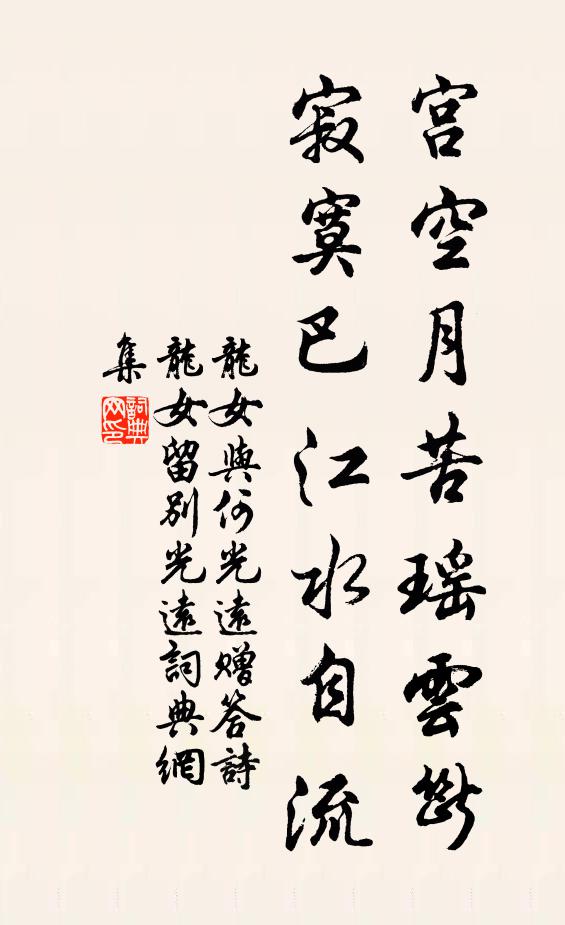 宮空月苦瑤雲斷
寂寞巴江水自流
龍女與何光遠贈答詩
龍女留別光遠詞典網
集
詞典
网印